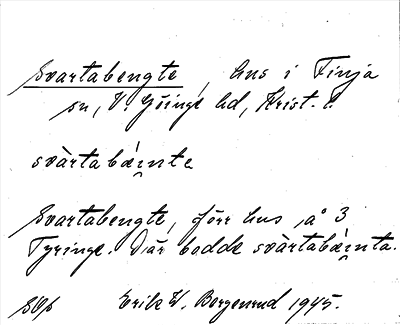 Svartabengte, hus i Finja
sn, V. Göinge hd, Krist. l.
svàrtabæ̀i̯nte
Svartabengte, förr hus på 3
Tyringe. Där bodde svàrtabæ̀i̯nta.
Erik W. Borgenrud 1945.